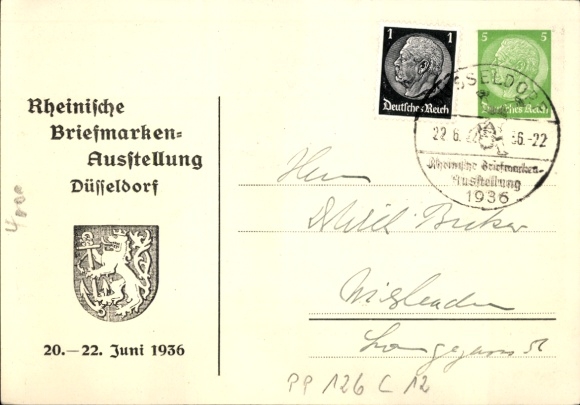 Rheinische
Briefmarken-
Ausstellung
Düsseldorf
20.—22. Juni 1936
1 1
Deutsches Reich
5 5
Deutsches Reich
DÜSSELDORF
22.6. 36.-22
Rheinische Briefmarken-
Ausstellung
1936
Herrn
Becker
Wiesbaden
PP 126 C 12